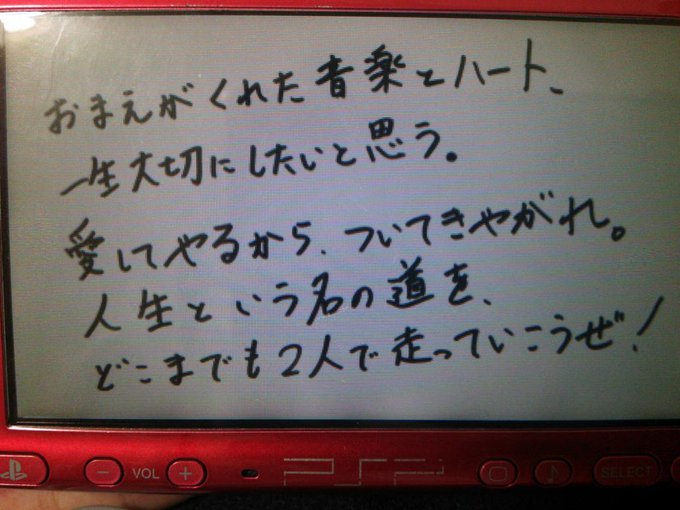 おまえがくれた音楽とハート、
一生大切にしたいと思う。
愛してやるから、ついてきやがれ。
人生という名の道を、
どこまでも2人で走っていこうぜ!
VOL
PSP
SELECT